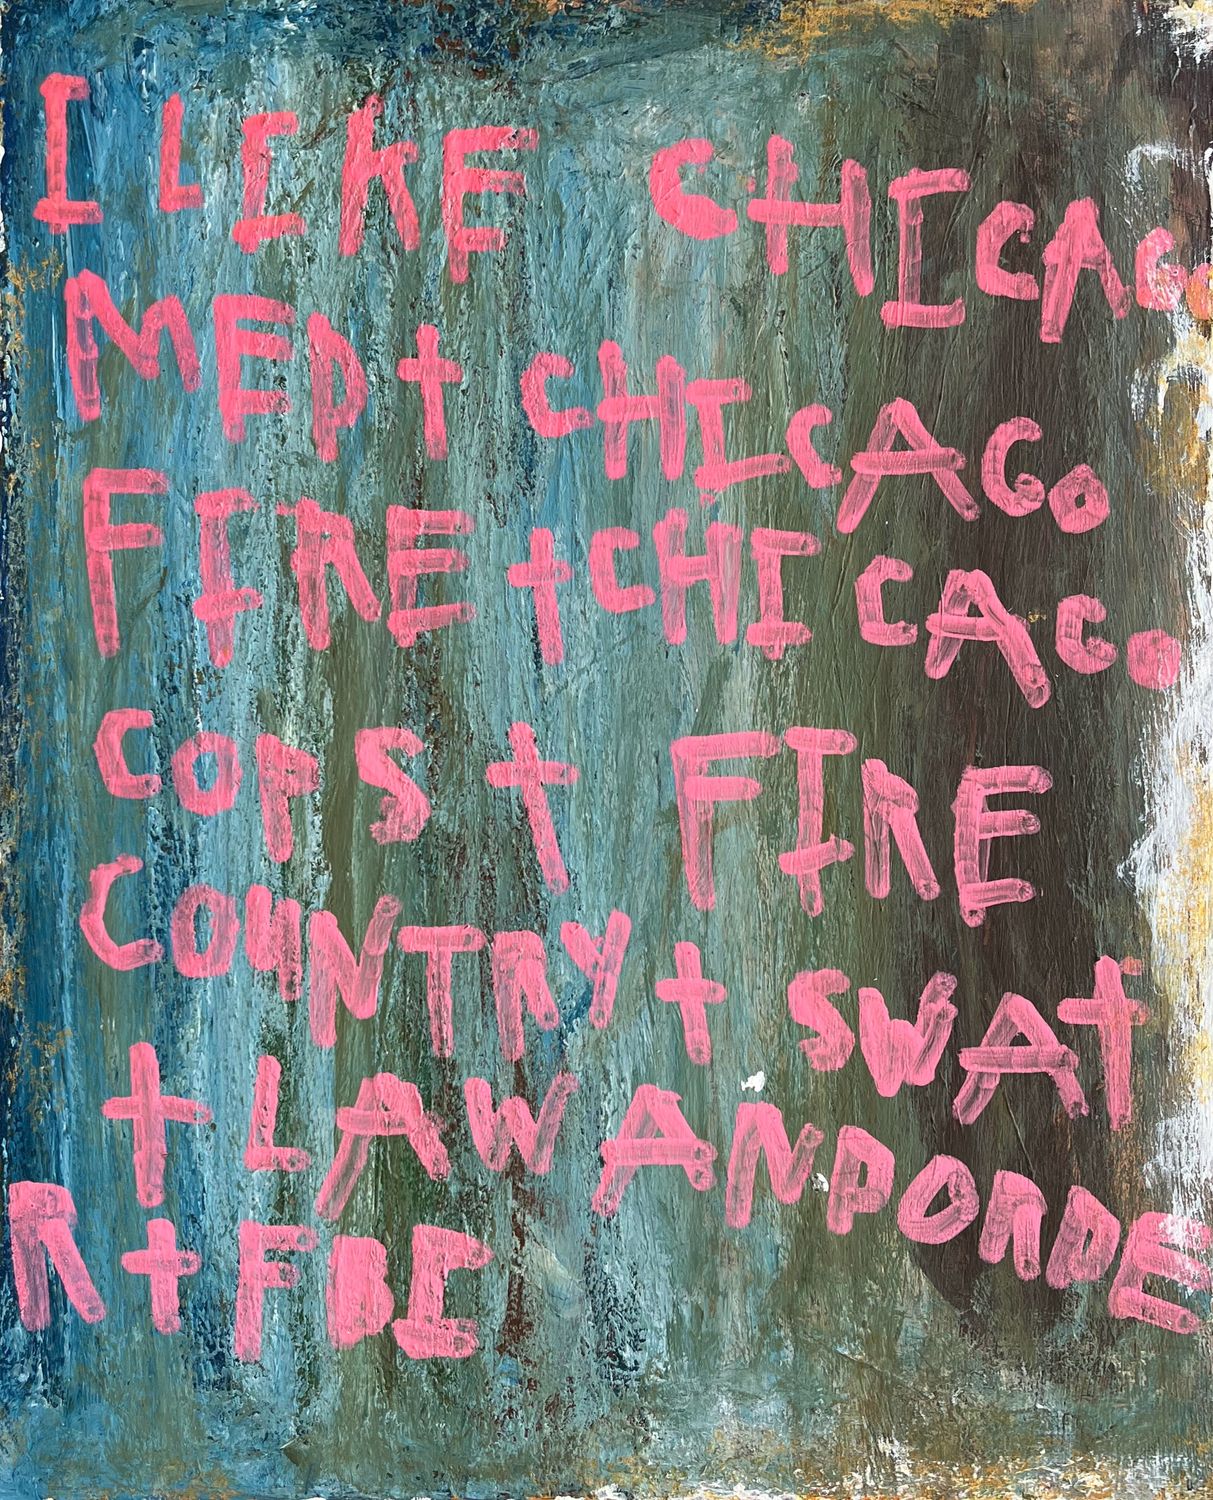 I LIKE CHICAGO
MED + CHICAGO
FIRE + CHICAGO
COPS + FIRE
COUNTRY + SWAT
+ LAW AND ORDE
R + FBI